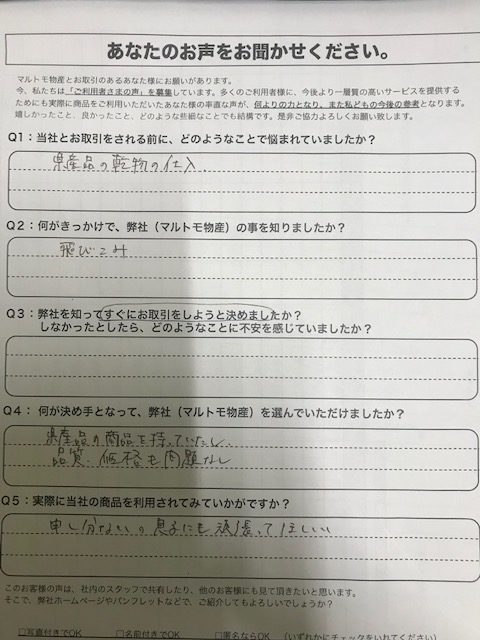 あなたのお声をお聞かせください。
マルトモ物産とお取引のあるあなた様にお願いがあります。
今、私たちは「ご利用者さまの声」を募集しています。多くのご利用者様に、今後より一層質の高いサービスを提供する
ためにも実際に商品をご利用いただいたあなた様の率直な声が、何よりの力となり、また私どもの今後の参考となります。
嬉しかったこと、良かったこと、どのような些細なことでも結構です。是非ご協力よろしくお願い致します。
Q1：当社とお取引をされる前に、どのようなことで悩まれていましたか？
県産品の乾物の仕入.
Q2：何がきっかけで、弊社（マルトモ物産）の事を知りましたか？
飛びこみ
Q3：弊社を知ってすぐにお取引をしようと決めましたか？
しなかったとしたら、どのようなことに不安を感じていましたか？
Q4：何が決め手となって、弊社（マルトモ物産）を選んでいただけましたか？
県産品の商品を持っていたし、
品質、価格も問題なし
Q5：実際に当社の商品を利用されてみていかがですか？
申し分ない。息子にも頑張ってほしい
このお客様の声は、社内のスタッフで共有したり、他のお客様にも見て頂きたいと思います。
そこで、弊社ホームページやパンフレットなどで、ご紹介してもよろしいでしょうか？
□写真付きでOK　□名前付きでOK　□匿名ならOK　（いずれかにチェックをいれてください）